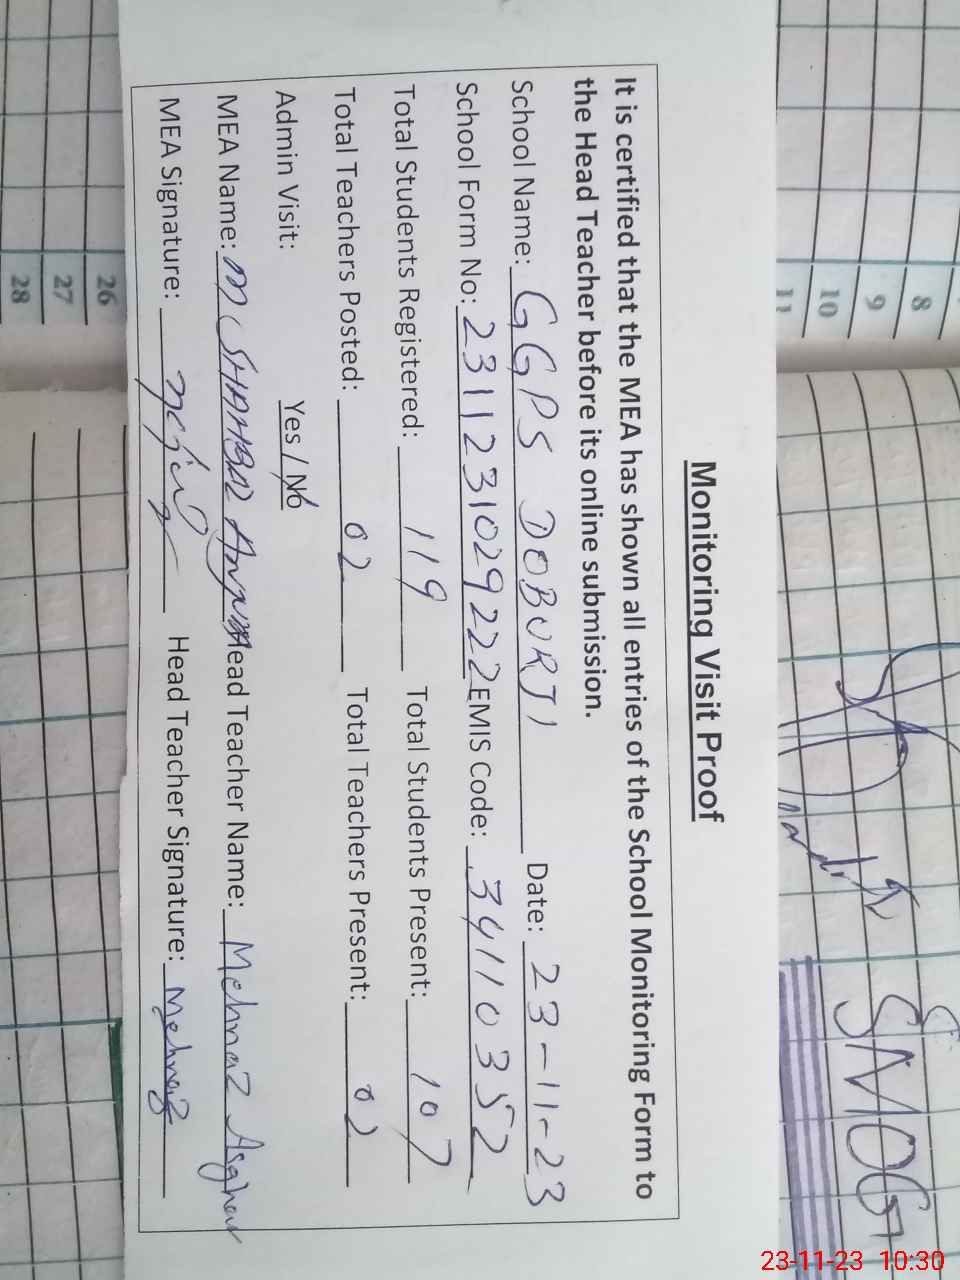 Monitoring Visit Proof
It is certified that the MEA has shown all entries of the School Monitoring Form to
the Head Teacher before its online submission.
School Name: GGPS DOBURJI Date: 23-11-23
School Form No: 2311231029222 EMIS Code: 34110352
Total Students Registered: 119 Total Students Present: 107
Total Teachers Posted: 02 Total Teachers Present: 02
Admin Visit: Yes / No
MEA Name: M. SHAHBAZ Head Teacher Name: Mehnaz Asghar
MEA Signature: Head Teacher Signature: Mehnaz
8
9
10
11
26
27
28
SMOG
23-11-23 10:30